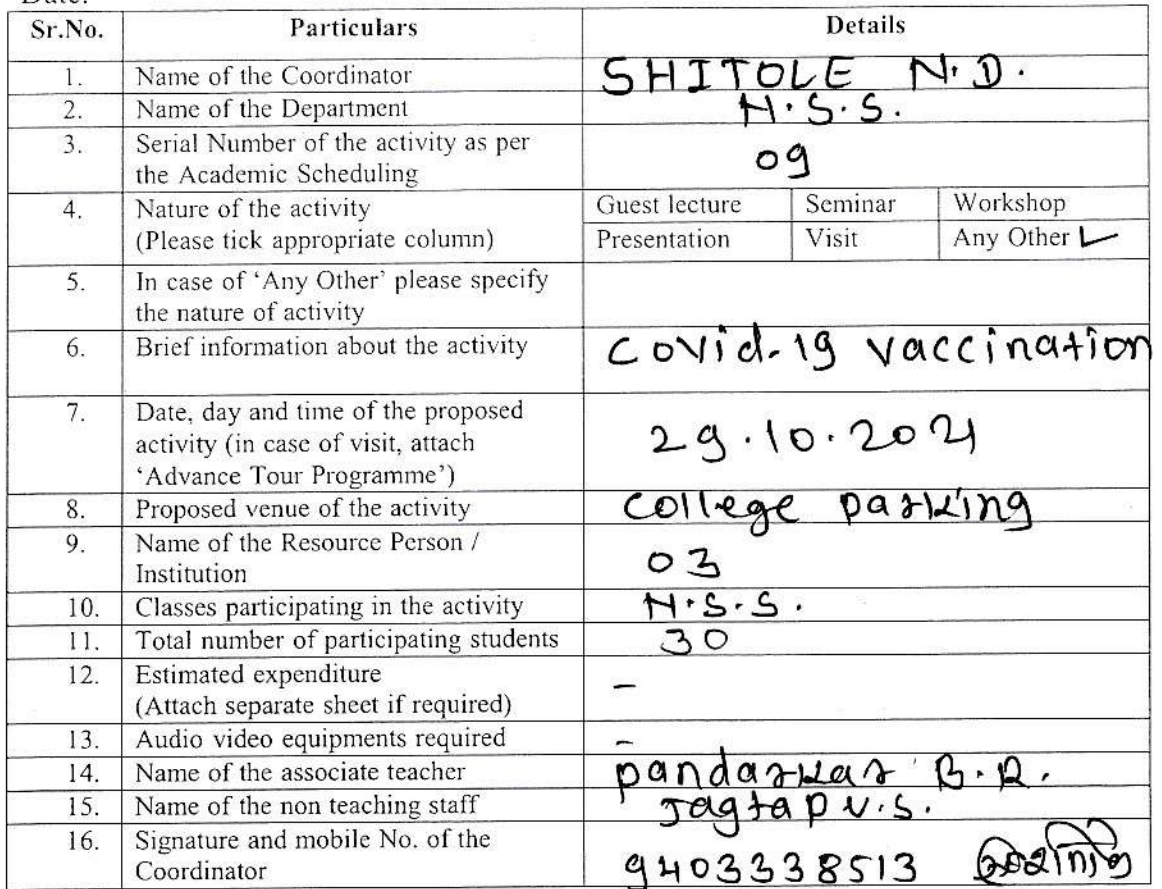 Date:
Sr.No. Particulars Details
1. Name of the Coordinator SHITOLE N.D.
2. Name of the Department N.S.S.
3. Serial Number of the activity as per
the Academic Scheduling 09
4. Nature of the activity Guest lecture Seminar Workshop
(Please tick appropriate column) Presentation Visit Any Other ✓
5. In case of 'Any Other' please specify
the nature of activity
6. Brief information about the activity Covid-19 vaccination
7. Date, day and time of the proposed
activity (in case of visit, attach 29.10.2021
'Advance Tour Programme')
8. Proposed venue of the activity college parking
9. Name of the Resource Person /
Institution 03
10. Classes participating in the activity N.S.S.
11. Total number of participating students 30
12. Estimated expenditure
(Attach separate sheet if required) –
13. Audio video equipments required –
14. Name of the associate teacher pandarkar B.R.
15. Name of the non teaching staff Jagtap V.S.
16. Signature and mobile No. of the
Coordinator 9403338513